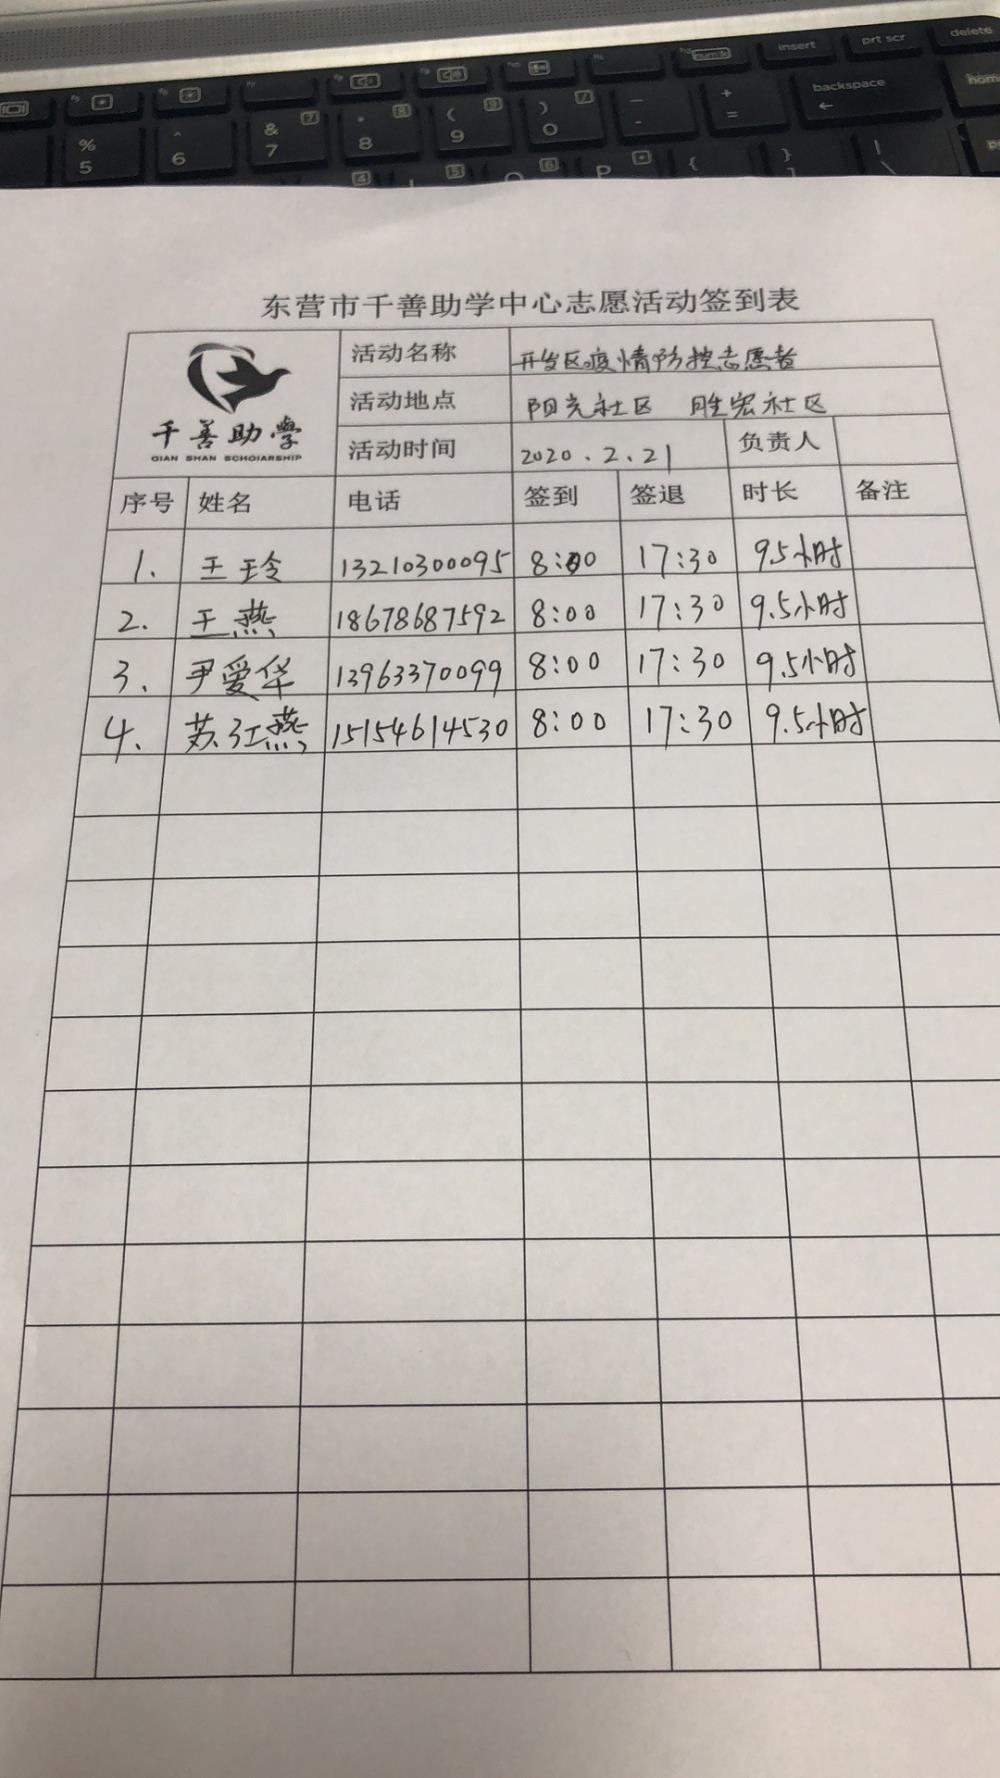 insert prt scr delete
backspace home
% 5 ^ 6 & 7 * 8 ( 9 ) 0 - + =
P { } | \
东营市千善助学中心志愿活动签到表
千善助学
QIAN SHAN SCHOIARSHIP
活动名称 开发区疫情防控志愿者
活动地点 阳光社区 胜宏社区
活动时间 2020.2.21 负责人
序号 姓名 电话 签到 签退 时长 备注
1. 王玲 13210300095 8:00 17:30 9.5小时
2. 王燕 18678687592 8:00 17:30 9.5小时
3. 尹爱华 13963370099 8:00 17:30 9.5小时
4. 苏红燕 15154614530 8:00 17:30 9.5小时